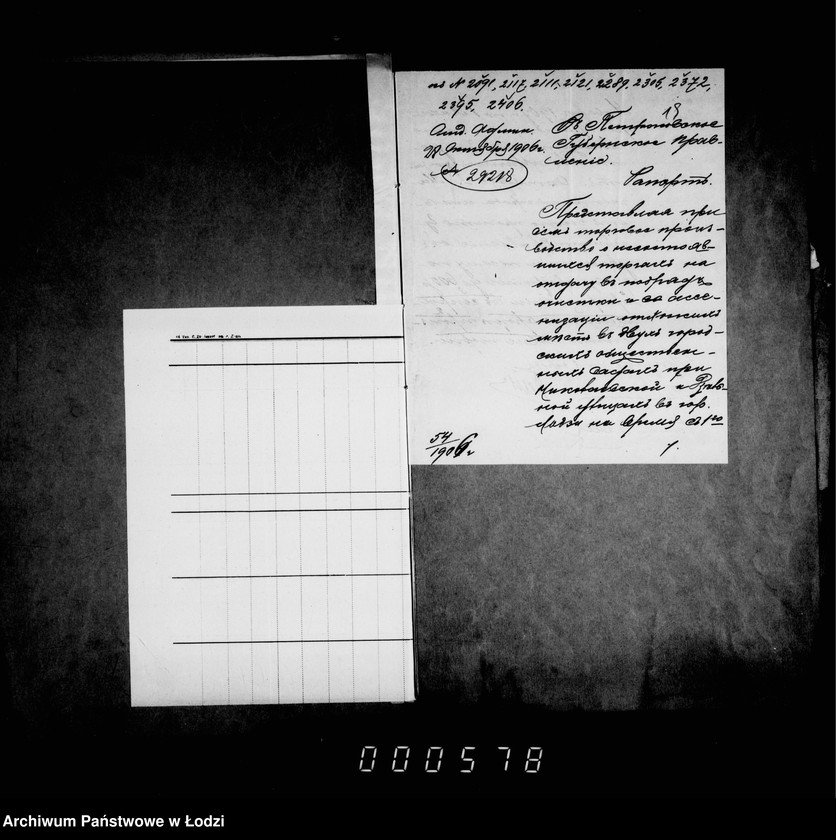 на № 2091, 2117, 2111, 2121, 2289, 2305, 2372,
2395, 2406.
13
Отд. Админ.
Октября 1906 г.
№ 29218
Въ Петроковское
Губернское Прав-
леніе.
Рапортъ.
Представляя при
семъ торговое произ-
водство о несостояв-
шихся торгахъ на
отдачу въ подрядъ
очистки и за ассе-
низацію отхожихъ
мѣстъ въ двухъ город-
скихъ общественн-
ныхъ садахъ при
Николаевской и
ной улицахъ въ гор.
Лодзи на время съ 1го
54/1906 г.
000578
Archiwum Państwowe w Łodzi